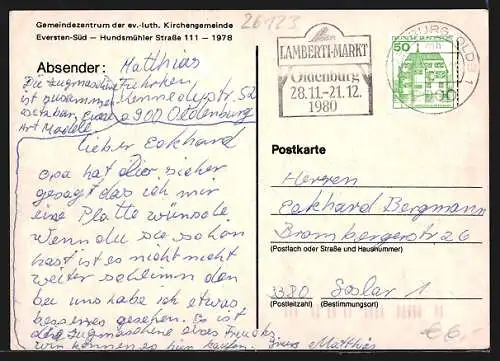 Gemeindezentrum der ev.-luth. Kirchengemeinde
Eversten-Süd — Hundsmühler Straße 111 — 1978
26123
Absender: Matthias
Fuhrken
Kennedystr. 52
2900 Oldenburg
Die Zugmaschine
ist zusammen
Art Modell
LAMBERTI-MARKT
Oldenburg
28.11.-21.12.
1980
50
Lieber Eckhard
Opa hat dir sicher
gesagt das ich mir
eine Platte wünsche.
Wenn du sie schon
hast ist es nicht nicht
weiter schlimm den
bei uns habe ich etwas
besseres gesehen. Es ist
die Zugmaschine eines Trucks
wir können es hier kaufen. Matthias
Postkarte
Herren
Eckhard Bergmann
Brombergerstr 26
(Postfach oder Straße und Hausnummer)
Goslar 1
(Postleitzahl) (Bestimmungsort)
€ 6,-